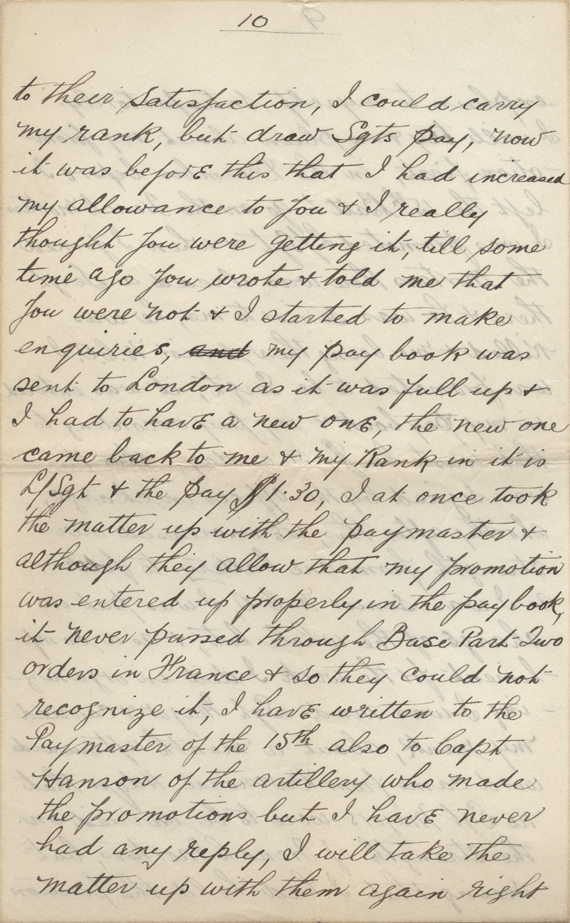 10
to their satisfaction, I could carry
my rank, but draw Sgts pay, now
it was before this that I had increased
my allowance to you & I really
thought you were getting it, till some
time ago you wrote & told me that
you were not & I started to make
enquiries, and my pay book was
sent to London as it was full up &
I had to have a new one, the new one
came back to me & my Rank in it is
L/Sgt & the pay $1.30, I at once took
the matter up with the paymaster &
although they allow that my promotion
was entered up properly in the pay book,
it never passed through Base Part Two
orders in France & so they could not
recognize it, I have written to the
Paymaster of the 15th also to Capt
Hanson of the artillery who made
the promotions but I have never
had any reply, I will take the
matter up with them again right